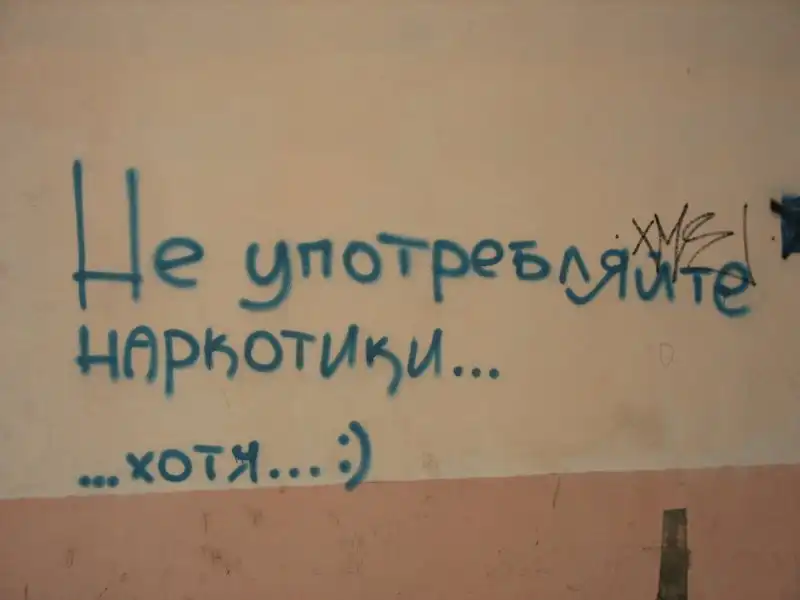 Не употребляйте
наркотики...
...хотя...:)